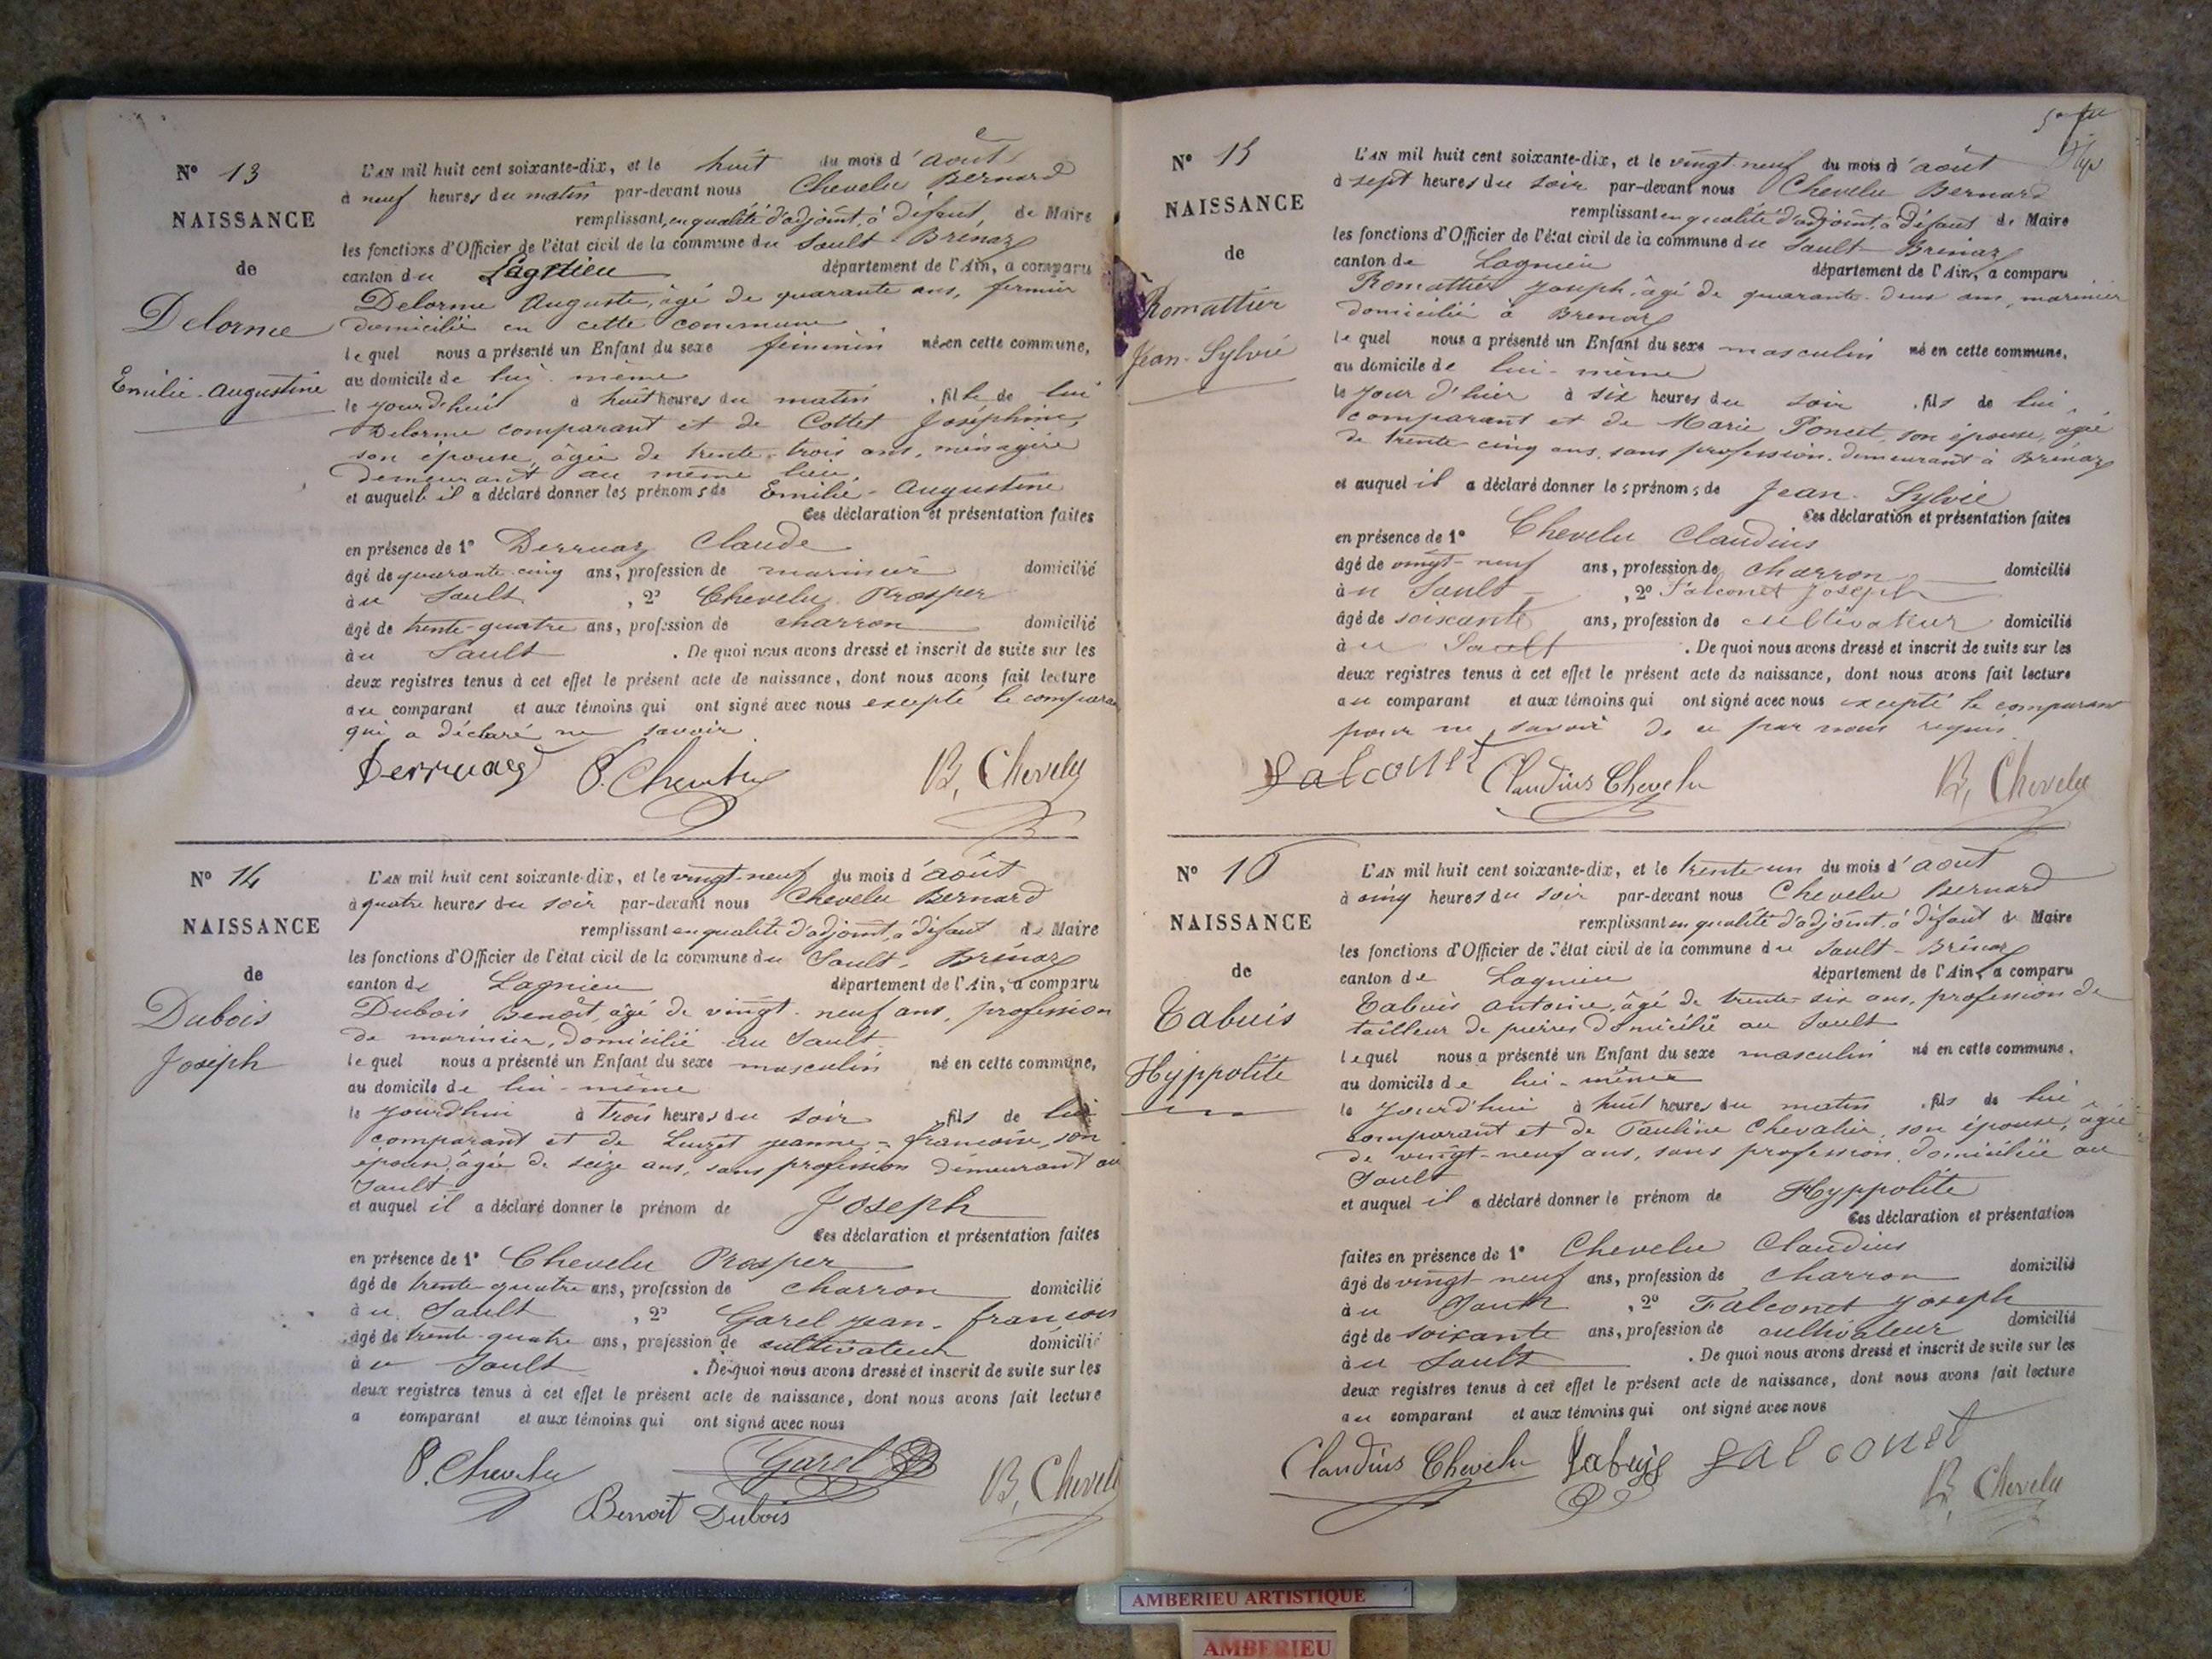 Nº 13
NAISSANCE
de
Delorme
Emilie-Augustine
L'AN mil huit cent soixante-dix, et le huit du mois d'août
à neuf heures du matin par-devant nous Chevelu Bernard
remplissant, en qualité d'adjoint, à défaut, de Maire
les fonctions d'Officier de l'état civil de la commune du Sault-Brénaz
canton du Lagnieu département de l'Ain, a comparu
Delorme Auguste, âgé de quarante ans, fermier
domicilié en cette commune
lequel nous a présenté un Enfant du sexe féminin né en cette commune,
au domicile de lui-même
le jourd'hui à huit heures du matin, fille de lui
Delorme comparant et de Cottet Joséphine,
son épouse, âgée de trente-trois ans, ménagère
demeurant au même lieu
et auquelle il a déclaré donner les prénoms de Emilie-Augustine
Ces déclaration et présentation faites
en présence de 1º Derruaz Claude
âgé de quarante-cinq ans, profession de marinier domicilié
à u Sault, 2º Chevelu Prosper
âgé de trente-quatre ans, profession de charron domicilié
à u Sault. De quoi nous avons dressé et inscrit de suite sur les
deux registres tenus à cet effet le présent acte de naissance, dont nous avons fait lecture
au comparant et aux témoins qui ont signé avec nous excepté le comparant
qui a déclaré ne savoir.
Derruaz P. Chevelu B. Chevelu
Nº 14
NAISSANCE
de
Dubois
Joseph
L'AN mil huit cent soixante-dix, et le vingt-neuf du mois d'août
à quatre heures du soir par-devant nous Chevelu Bernard
remplissant en qualité d'adjoint, à défaut de Maire
les fonctions d'Officier de l'état civil de la commune du Sault-Brénaz
canton de Lagnieu département de l'Ain, a comparu
Dubois Benoît, âgé de vingt-neuf ans, profession
de marinier, domicilié au Sault
lequel nous a présenté un Enfant du sexe masculin né en cette commune,
au domicile de lui-même
le jourd'hui à trois heures du soir, fils de lui
comparant et de Luzet Jeanne-Françoise, son
épouse, âgée de seize ans, sans profession demeurant au
Sault
et auquel il a déclaré donner le prénom de Joseph
Ces déclaration et présentation faites
en présence de 1º Chevelu Prosper
âgé de trente-quatre ans, profession de charron domicilié
à u Sault, 2º Garel Jean-François
âgé de trente-quatre ans, profession de cultivateur domicilié
à u Sault. De quoi nous avons dressé et inscrit de suite sur les
deux registres tenus à cet effet le présent acte de naissance, dont nous avons fait lecture
a comparant et aux témoins qui ont signé avec nous
P. Chevelu Garel B. Chevelu
Benoit Dubois
Nº 15
NAISSANCE
de
Romattier
Jean-Sylvie
L'AN mil huit cent soixante-dix, et le vingt-neuf du mois d'août
à sept heures du soir par-devant nous Chevelu Bernard
remplissant en qualité d'adjoint, à défaut de Maire
les fonctions d'Officier de l'état civil de la commune du Sault-Brénaz
canton de Lagnieu département de l'Ain, a comparu
Romattier Joseph, âgé de quarante-deux ans, marinier
domicilié à Brénaz
lequel nous a présenté un Enfant du sexe masculin né en cette commune,
au domicile de lui-même
le jour d'hier à six heures du soir, fils de lui
comparant et de Marie Poncet, son épouse, âgée
de trente-cinq ans, sans profession, demeurant à Brénaz
et auquel il a déclaré donner les prénoms de Jean-Sylvie
Ces déclaration et présentation faites
en présence de 1º Chevelu Claudius
âgé de vingt-neuf ans, profession de charron domicilié
à u Sault, 2º Falconet Joseph
âgé de soixante ans, profession de cultivateur domicilié
à u Sault. De quoi nous avons dressé et inscrit de suite sur les
deux registres tenus à cet effet le présent acte de naissance, dont nous avons fait lecture
au comparant et aux témoins qui ont signé avec nous excepté le comparant
pour ne savoir de ce par nous requis.
Falconet Claudius Chevelu B. Chevelu
Nº 16
NAISSANCE
de
Tabuis
Hyppolite
L'AN mil huit cent soixante-dix, et le trente-un du mois d'août
à cinq heures du soir par-devant nous Chevelu Bernard
remplissant en qualité d'adjoint, à défaut de Maire
les fonctions d'Officier de l'état civil de la commune du Sault-Brénaz
canton de Lagnieu département de l'Ain, a comparu
Tabuis Antoine, âgé de trente-six ans, profession de
tailleur de pierres domicilié au Sault
lequel nous a présenté un Enfant du sexe masculin né en cette commune,
au domicile de lui-même
le jourd'hui à huit heures du matin, fils de lui
comparant et de Pauline Chevalier, son épouse, âgée
de vingt-neuf ans, sans profession, domiciliée au
Sault
et auquel il a déclaré donner le prénom de Hyppolite
Ces déclaration et présentation
faites en présence de 1º Chevelu Claudius
âgé de vingt-neuf ans, profession de charron domicilié
à u Sault, 2º Falconet Joseph
âgé de soixante ans, profession de cultivateur domicilié
à u Sault. De quoi nous avons dressé et inscrit de suite sur les
deux registres tenus à cet effet le présent acte de naissance, dont nous avons fait lecture
au comparant et aux témoins qui ont signé avec nous
Claudius Chevelu Tabuis Falconet
B. Chevelu
AMBERIEU ARTISTIQUE
AMBERIEU